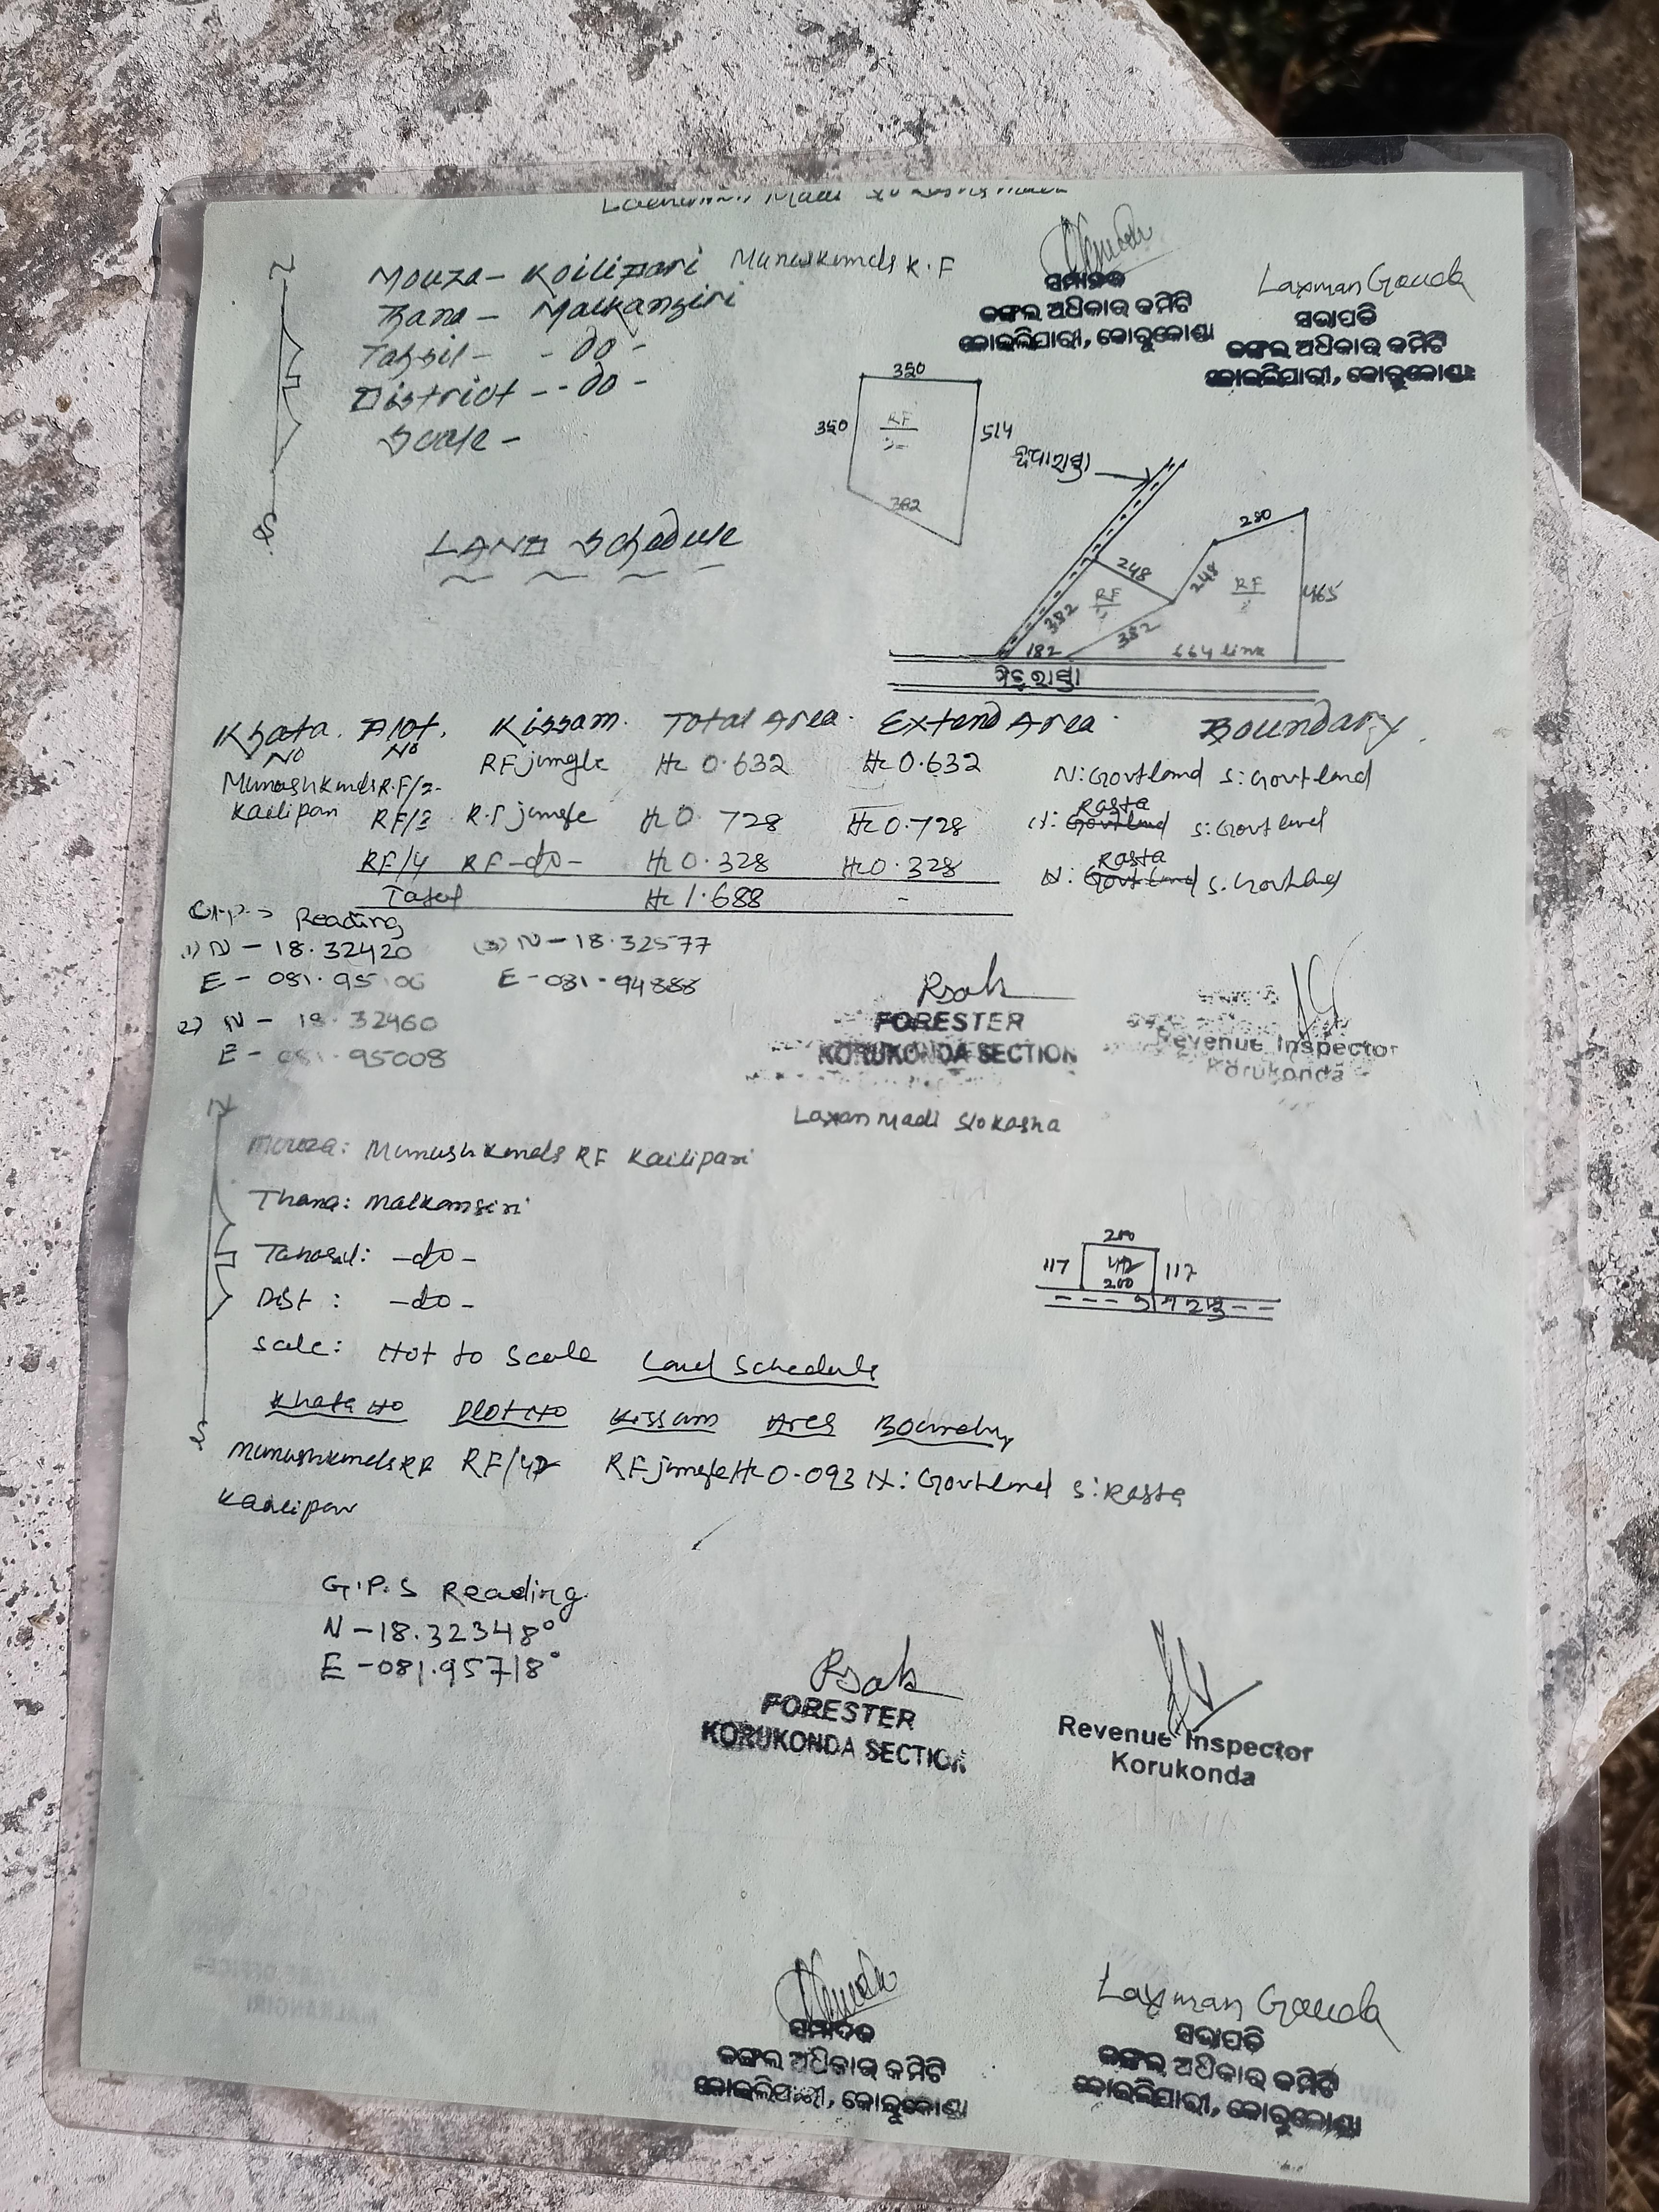 Mouza - Koilipari Munushkonda R.F
Thana - Malkangiri
Tahsil - - do -
District - - do -
Scale -
N
S
ସମ୍ପାଦକ
ଜଙ୍ଗଲ ଅଧିକାର କମିଟି
କୋଇଲିପାରୀ, କୋରୁକୋଣ୍ଡା
Laxman Gouda
ସଭାପତି
ଜଙ୍ଗଲ ଅଧିକାର କମିଟି
କୋଇଲିପାରୀ, କୋରୁକୋଣ୍ଡା
350
350 RF 514
382
LAND Schedule
280
248 248 RF 465
RF
382 382
182 664 link
Khata No Plot No Kissam. Total Area. Extend Area. Boundary.
RF jungle Hc 0.632 Hc 0.632 N: Govt land S: Govt land
R.F/2
Kailipari RF/3 R.F jungle Hc 0.728 Hc 0.728 N: Rasta Govt land S: Govt land
RF/4 RF -do- Hc 0.328 Hc 0.328 N: Rasta Govt land S: Govt land
Total Hc 1.688 -
Reading
1) N - 18.32420 (3) N - 18.32577
E - 081.95106 E - 081.94888
2) N - 18.32460
E - 081.95008
FORESTER
KORUKONDA SECTION
Revenue Inspector
Korukonda
Laxan Madi S/o Kasha
N
S
Mouza: Munushkonda RF Kailipari
Thana: Malkangiri
Tahasil: -do-
Dist: -do-
Scale: Not to Scale Land Schedule
200
117 117
200
Khata No Plot No Kissam Area Boundry
RF jungle Hc 0.093 N: Govt land S: Rasta
Kailipari
G.P.S Reading
N - 18.32348°
E - 081.95718°
FORESTER
KORUKONDA SECTION
Revenue Inspector
Korukonda
ସମ୍ପାଦକ
ଜଙ୍ଗଲ ଅଧିକାର କମିଟି
କୋଇଲିପାରୀ, କୋରୁକୋଣ୍ଡା
Laxman Gouda
ସଭାପତି
ଜଙ୍ଗଲ ଅଧିକାର କମିଟି
କୋଇଲିପାରୀ, କୋରୁକୋଣ୍ଡା